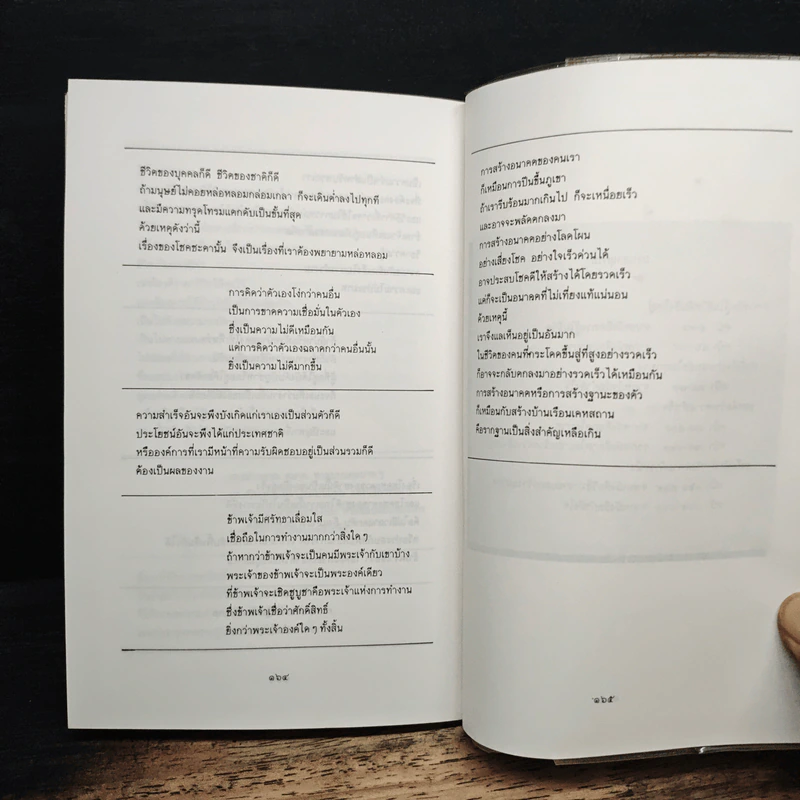 ชีวิตของบุคคลก็ดี ชีวิตของชาติก็ดี
ถ้ามนุษย์ไม่คอยหล่อหลอมกล่อมเกลา ก็จะเดินต่ำลงไปทุกที
และมีความทรุดโทรมแตกดับเป็นขั้นที่สุด
ด้วยเหตุดังว่านี้
เรื่องของโชคชะตานั้น จึงเป็นเรื่องที่เราต้องพยายามหล่อหลอม
การคิดว่าตัวเองโง่กว่าคนอื่น
เป็นการขาดความเชื่อมั่นในตัวเอง
ซึ่งเป็นความไม่ดีเหมือนกัน
แต่การคิดว่าตัวเองฉลาดกว่าคนอื่นนั้น
ยิ่งเป็นความไม่ดีมากขึ้น
ความสำเร็จอันจะพึงบังเกิดแก่เราเองเป็นส่วนตัวก็ดี
ประโยชน์อันจะพึงได้แก่ประเทศชาติ
หรือองค์การที่เรามีหน้าที่ความรับผิดชอบอยู่เป็นส่วนรวมก็ดี
ต้องเป็นผลของงาน
ข้าพเจ้ามีศรัทธาเลื่อมใส
เชื่อถือในการทำงานมากกว่าสิ่งใด ๆ
ถ้าหากว่าข้าพเจ้าจะเป็นคนมีพระเจ้ากับเขาบ้าง
พระเจ้าของข้าพเจ้าจะเป็นพระองค์เดียว
ที่ข้าพเจ้าจะเชิดชูบูชาคือพระเจ้าแห่งการทำงาน
ซึ่งข้าพเจ้าเชื่อว่าศักดิ์สิทธิ์
ยิ่งกว่าพระเจ้าองค์ใด ๆ ทั้งสิ้น
๑๖๔
การสร้างอนาคตของคนเรา
ก็เหมือนการปีนขึ้นภูเขา
ถ้าเรารีบร้อนมากเกินไป ก็จะเหนื่อยเร็ว
และอาจจะพลัดตกลงมา
การสร้างอนาคตอย่างโลดโผน
อย่างเสี่ยงโชค อย่างใจเร็วด่วนได้
อาจประสบโชคดีให้สร้างได้โดยรวดเร็ว
แต่ก็จะเป็นอนาคตที่ไม่เที่ยงแท้แน่นอน
ด้วยเหตุนี้
เราจึงแลเห็นอยู่เป็นอันมาก
ในชีวิตของคนที่กระโดดขึ้นสู่ที่สูงอย่างรวดเร็ว
ก็อาจจะกลับตกลงมาอย่างรวดเร็วได้เหมือนกัน
การสร้างอนาคตหรือการสร้างฐานะของตัว
ก็เหมือนกับสร้างบ้านเรือนเคหสถาน
คือรากฐานเป็นสิ่งสำคัญเหลือเกิน
๑๖๕